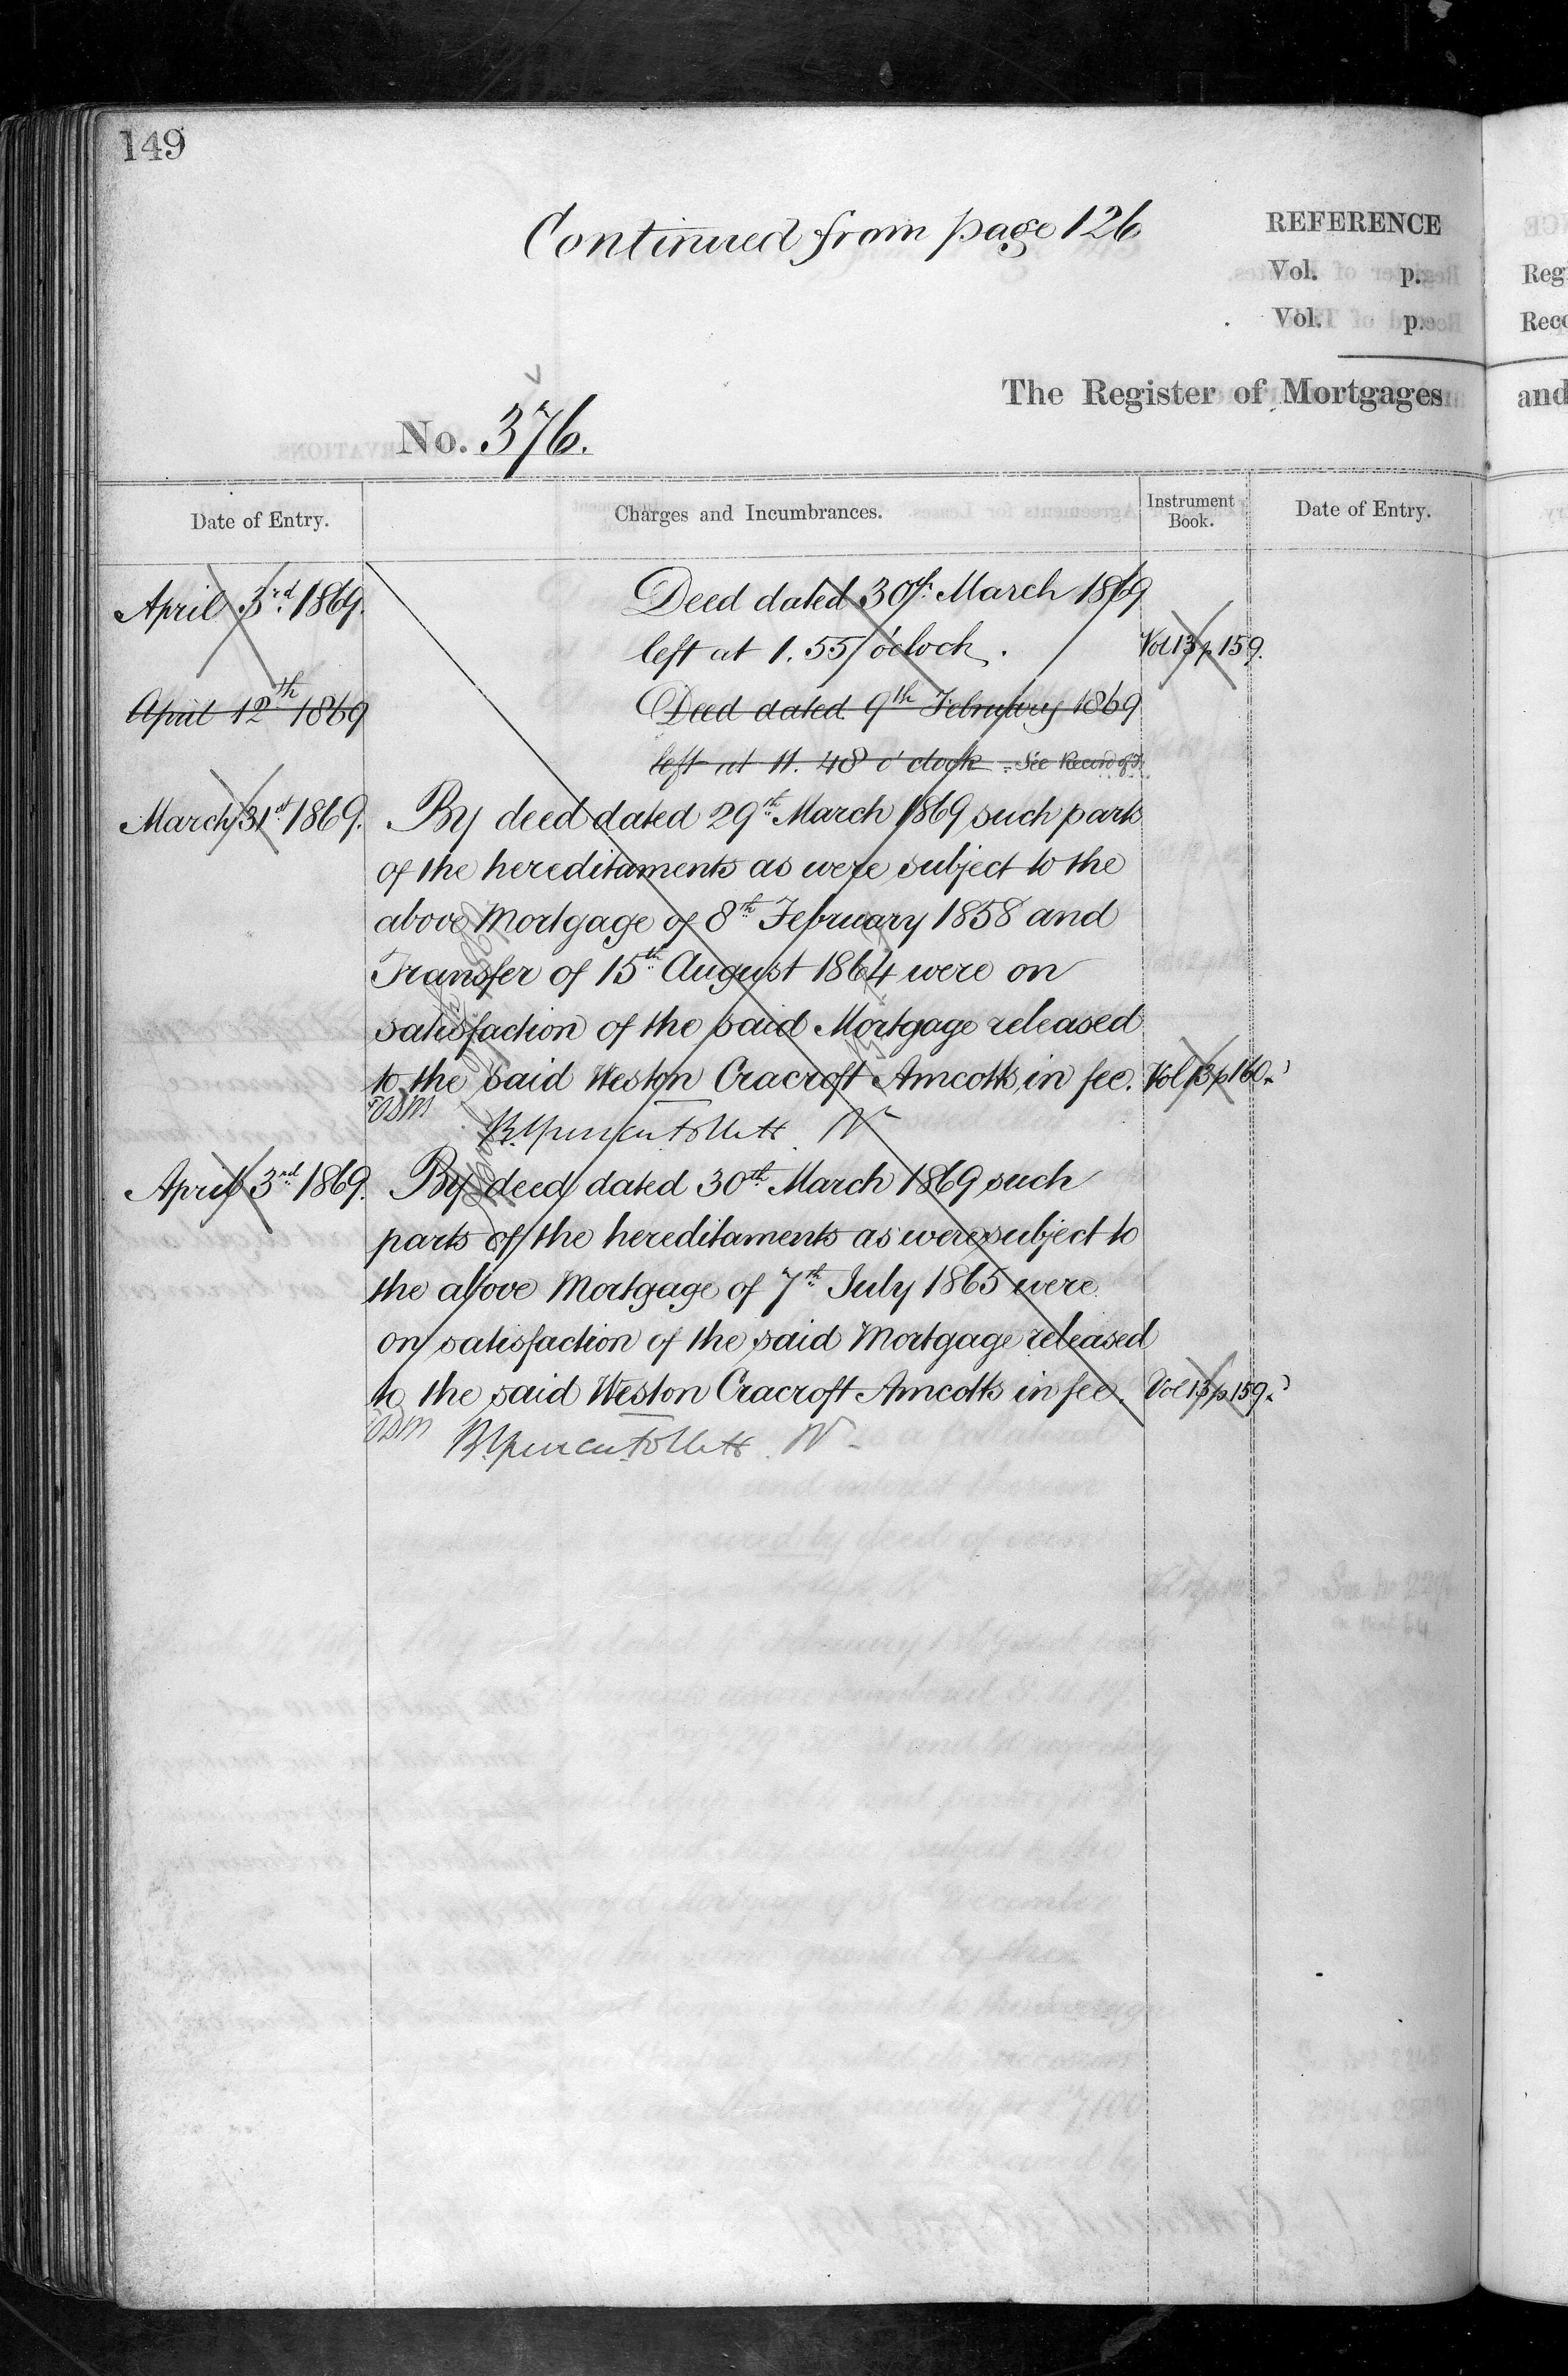 149
Continued from page 126
REFERENCE
Vol. p.
Vol. p.
The Register of Mortgages
and
No. 376.
Date of Entry.
Charges and Incumbrances.
Instrument Book.
Date of Entry.
April 3rd 1869. Deed dated 30th March 1869
left at 1.55 o'clock. Vol 13 p 159.
April 12th 1869 Deed dated 9th February 1869
left at 11.48 o'clock - See Record of T.
March 31st 1869. By deed dated 29th March 1869 such parts
of the hereditaments as were subject to the
above Mortgage of 8th February 1858 and
Transfer of 15th August 1864 were on
satisfaction of the said Mortgage released
to the said Weston Cracroft Amcotts in fee. Vol 13 p 160.
April 3rd 1869. By deed dated 30th March 1869 such
parts of the hereditaments as were subject to
the above Mortgage of 7th July 1865 were
on satisfaction of the said Mortgage released
to the said Weston Cracroft Amcotts in fee. Vol 13 p 159.